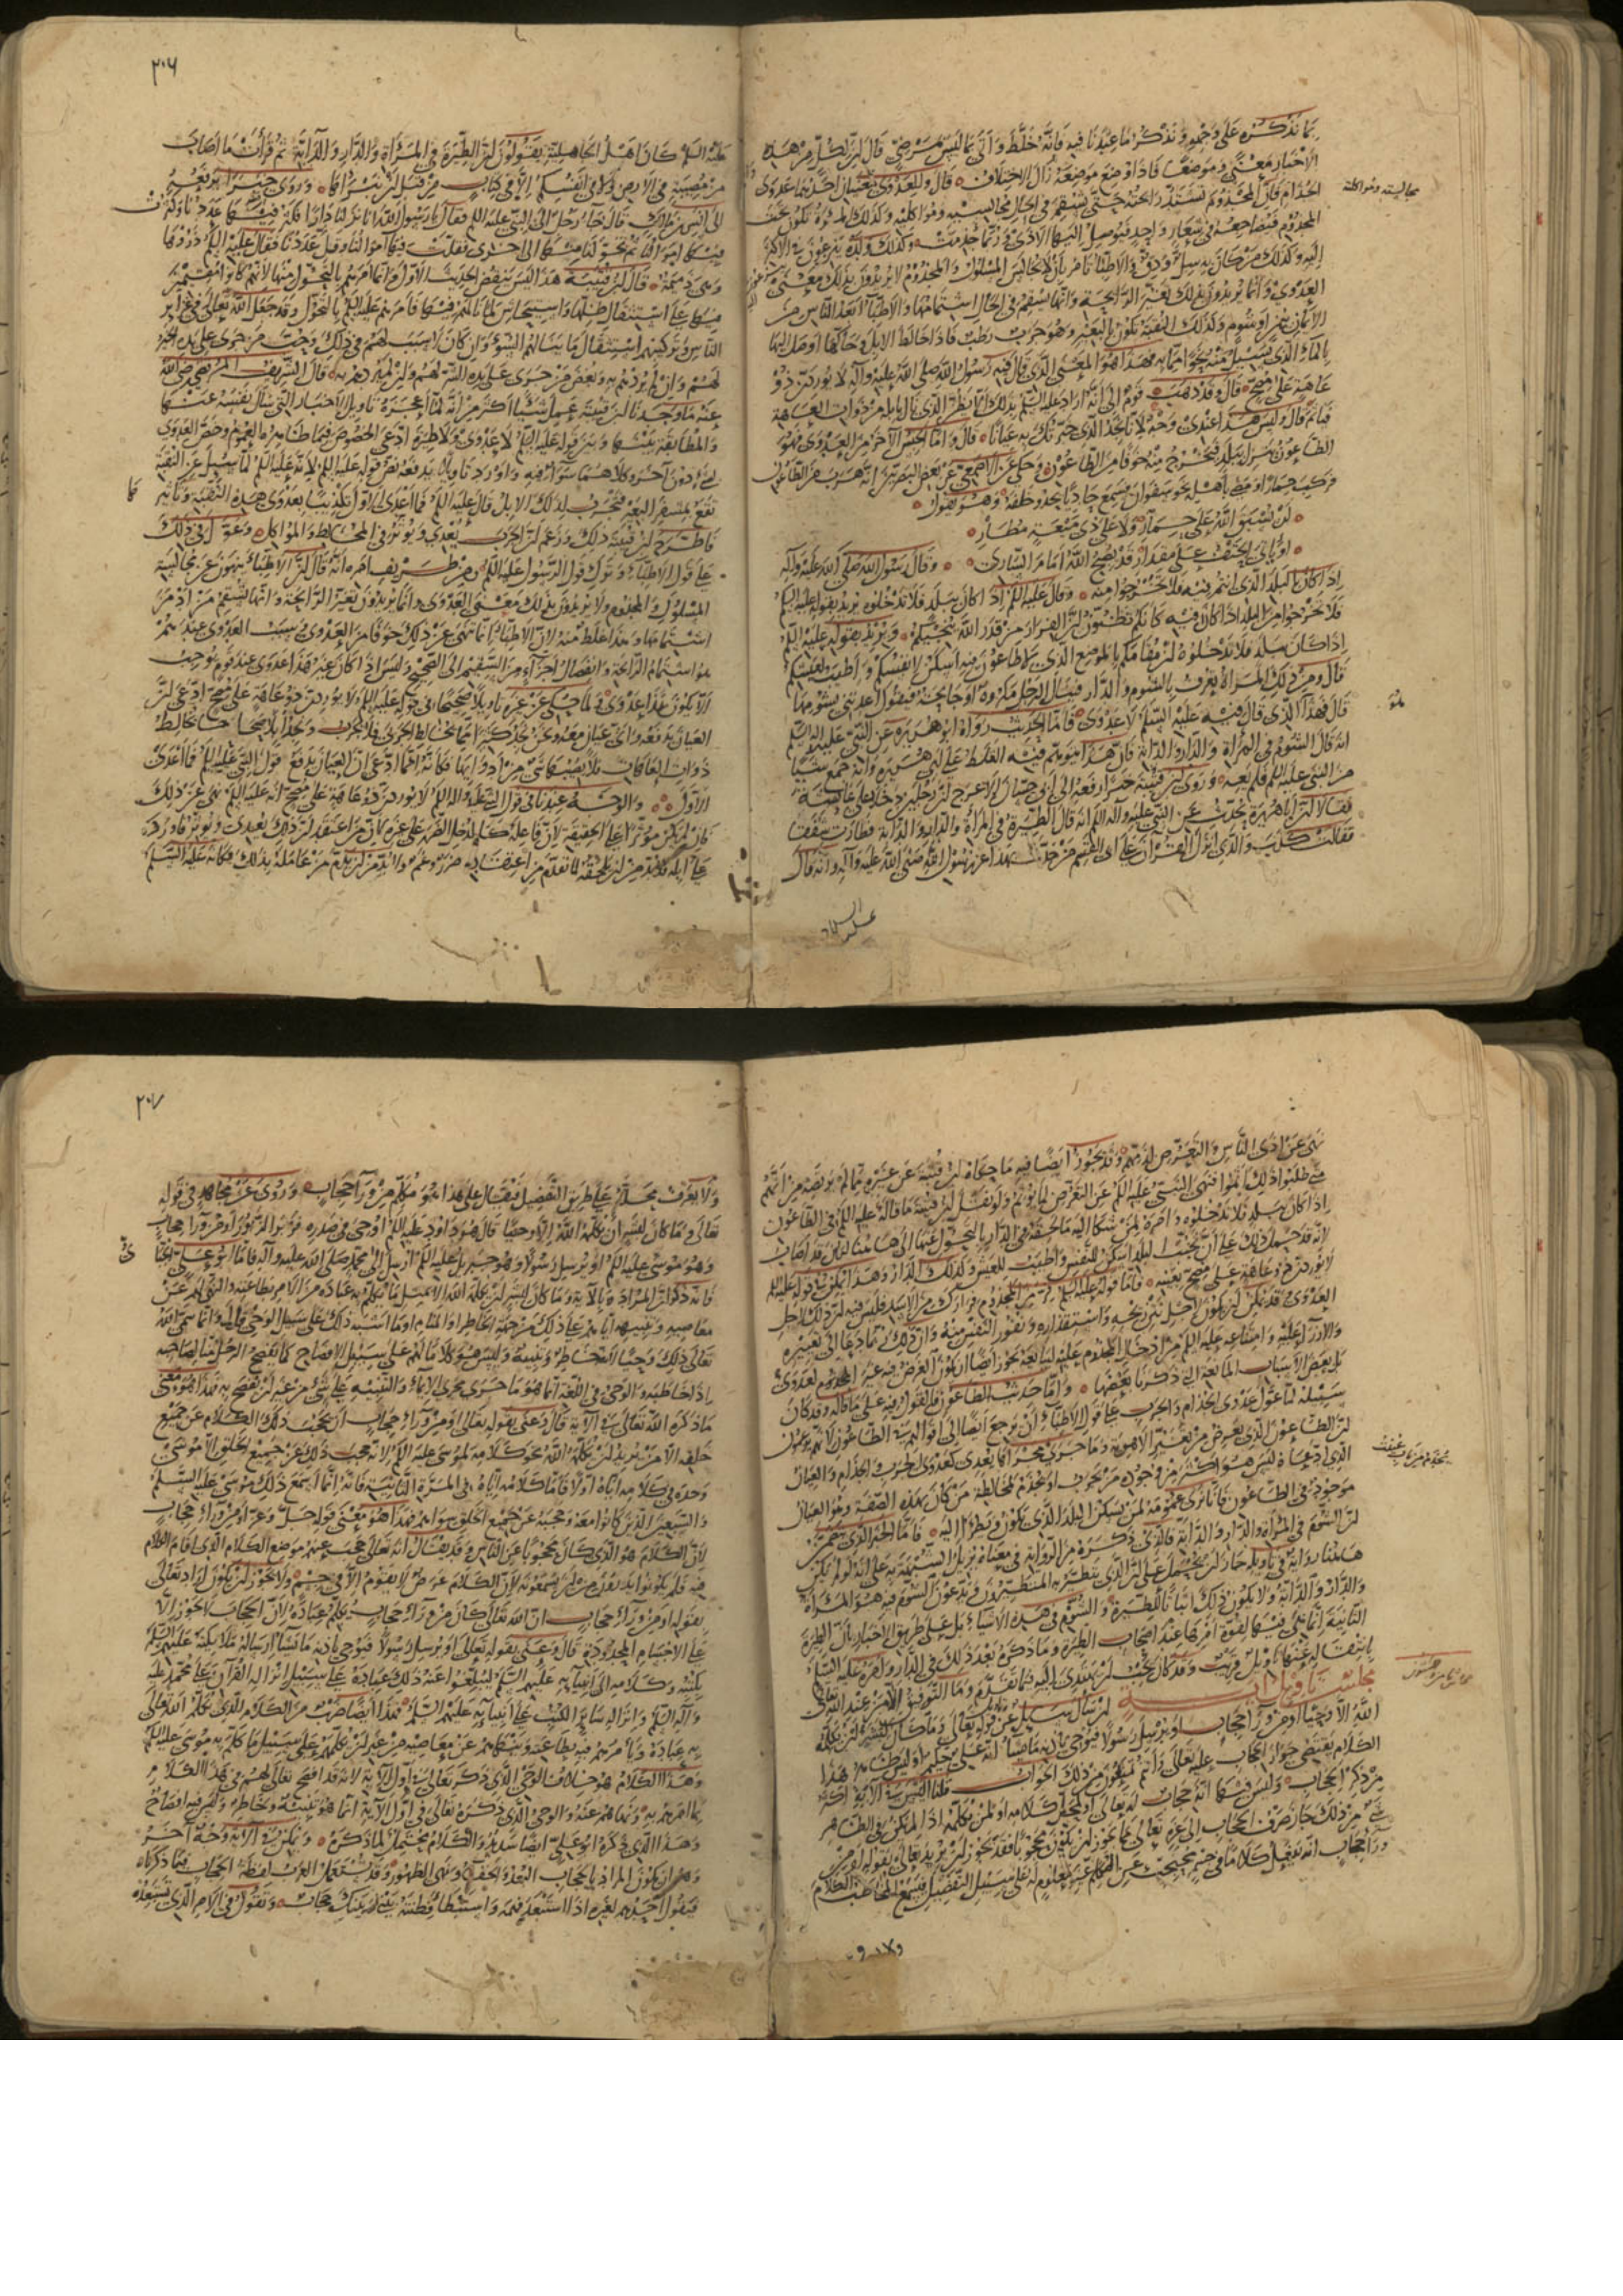 بما نذكره على وجهه ونذكر ما عندنا فيه فانه خلط واتى بما ليس بمرضي قال ان لكل من هذه
الاخبار معنى وموضعا فاذا وضع موضعه زال الاختلاف قال وللعدوى معنيان احدهما عدوى
الجذام فان المجذوم تشتد رائحته حتى تسقم في الحال مجالسيه ومواكليه وكذلك المرأة تكون تحت
المجذوم فيضاجعها في شعار واحد فيوصل اليها الاذى وربما جذمت وكذلك ولده ينزعون في الاكثر
اليه وكذلك من كان به سل ودق والاطباء تامر بان لا يجالس المسلول والمجذوم لا يريدون بذلك معنى
العدوى وانما يريدون بذلك تغير الرائحة وانها تسقم في الحال اشتمامها والاطباء ابعد الناس من
الايمان بيمن او شوم وكذلك النقبة تكون بالبعير وهو جرب رطب فاذا خالط الابل وحاكها اوصل اليها
بالماء الذي يسيل منه نحوا مما به فهذا هو المعنى الذي قال فيه رسول الله صلى الله عليه وآله لا يوردن ذو
عاهة على مصح قال وقد ذهب قوم الى انه اراد عليه السلم بذلك الا يظن ان الذي نال بابله من ذوات العاهة
فيأثم قال وليس لهذا عندي وجه لانا نجد الذي خبرتك به عيانا قال واما الجنس الآخر من العدوى فهو
الطاعون ينزل ببلد فيخرج منه خوفا من الطاعون وحكي عن الاصمعي عن بعض البصريين انه هرب من الطاعون
فركب حمارا ومضى باهله نحو سفوان فسمع حاديا يحدو خلفه وهو يقول
لن يسبق الله على حمار ولا على ذي ميعة مطار
او ياتي الحتف على مقدار قد يصبح الله امام الساري وقال رسول الله صلى الله عليه وآله
اذا كان بالبلد الذي انتم فيه فلا تخرجوا منه وقال عليه السلم اذا كان ببلد فلا تدخلوه يريد بقوله عليه السلم
فلا تخرجوا من البلد اذا كان فيه كانكم تظنون ان الفرار من قدر الله ينجيكم ويريد بقوله عليه السلم
اذا كان ببلد فلا تدخلوه ان مقامكم بالموضع الذي لا طاعون فيه اسكن لانفسكم واطيب لعيشكم
قال ومن ذلك المرأة تعرف بالشوم والدار فينال الرجل مكروه او جائحة فيقول اعدتني بشومها
قال فهذا الذي قال فيه عليه السلم لا عدوى فاما الحديث رواه ابو هريرة عن النبي عليه السلم
انه قال الشوم في المرأة والدار والدابة فان هذا يتوهم فيه الغلط على ابي هريرة وانه سمع شيئا
من النبي عليه السلم فلم يعه وروى ابن قتيبة خبرا رفعه الى ابي حسان الاعرج ان رجلين دخلا على عائشة
فقالا ان ابا هريرة يحدث عن النبي عليه وآله السلم انه قال الطيرة في المرأة والدار والدابة فطارت شفقا
فقالت كذب والذي انزل القرآن على ابي القسم من حدث بهذا عن رسول الله صلى الله عليه وآله وانه قال
عليه السلم
مجالسيه ومواكليه
٢٠٦
عليه السلم كان اهل الجاهلية يقولون ان الطيرة في المرأة والدار والدابة ثم قرأت ما اصاب
من مصيبة في الارض ولا في انفسكم الا في كتاب من قبل ان نبرأها وروى خبرا يرفعه
الى انس بن مالك قال جاء رجل الى النبي عليه السلم فقال يا رسول الله انا نزلنا دارا فكثر فيها عددنا وكثرت
فيها اموالنا ثم تحولنا منها الى اخرى فقلت فيها اموالنا وقل عددنا فقال عليه السلم ذروها
وهي ذميمة قال ابن قتيبة هذا ليس ينقض الحديث الاول وانما امرهم بالتحول منها لانهم كانوا مقيمين
فيها على استثقال ظلها واستيحاش لما نالهم فيها فامرهم عليه السلم بالتحول وقد جعل الله تعالى في غرائز
الناس وتركيبهم استثقال ما ينالهم السوء وان كان لا سبب لهم في ذلك وحب من جرى على يده الخير
لهم وان لم يردهم به وبغض من جرى على يده الشر لهم وان لم يردهم به قال الشريف المرتضى رضي الله
عنه ما وجدنا ابن قتيبة عمل شيئا اكثر من انه لما اعجزه تاويل الاخبار التي سال نفسه عنها
والمطابقة بينها وبين قوله عليه السلم لا عدوى ولا طيرة ادعى الخصوص فيما ظاهره العموم وخص العدوى
بشيء دون آخر وكلاهما سواء فيه واورد تاويلا يدفعه نص قوله عليه السلم لانه عليه السلم لما سئل عن النقبة
تقع بمشفر البعير فتجرب لذلك الابل قال عليه السلم فما اعدى الاول تكذيبا بعدوى هذه النقبة وتأثيرها
فاطرح ابن قتيبة ذلك وزعم ان الجرب يعدي ويوثر في المخالط والمواكل وعول في ذلك
على قول الاطباء وترك قول الرسول عليه السلم ومن طريف امره انه قال ان الاطباء ينهون عن مجالسة
المسلول والمجذوم ولا يريدون بذلك معنى العدوى وانما يريدون تغير الرائحة وانها تسقم من ادمن
اشتمامها وهذا غلط منه لان الاطباء انما تنهى عن ذلك خوفا من العدوى وسبب العدوى عندهم
هو اشتمام الرائحة وانفصال اجزاء من السقيم الى الصحيح وليس اذا كان غير هذا عدوى عند قوم يوجب
الا يكون هذا عدوى ولما حكي عن غيره تاويلا صحيحا في قوله عليه السلم لا يوردن ذو عاهة على مصح ادعى ان
العيان يدفعه واي عيان معه ونحن نجد كثيرا مما يخالط الجربى فلا يجرب ونجد ابلا صحاحا تخالط
ذوات العاهات فلا يصيبها شيء من ادوائها فكانه انما ادعى ان العيان يدفع قول النبي عليه السلم فما اعدى
الاول والوجه عندنا في قول النبي عليه وآله السلم لا يوردن ذو عاهة على مصح انه عليه السلم نهى عن ذلك
وان لم يكن مؤثرا على الحقيقة لان فاعله كالمدخل الضرر على غيره لان من اعتقد ان ذلك يعدي ويوثر فاورده
على ابله فلابد من ان يلحقه لما تقدم من اعتقاده ضرر وغم ولابد من ان يذم من عامله بذلك فكانه عليه السلم
نهى عن اذى الناس والتعرض لذمهم وقد يجوز ايضا فيه ما حكاه ابن قتيبة عن غيره مما لم يرتضه من انهم
متى ظنوا ذلك اثموا فنهى النبي عليه السلم عن التعرض لما يؤثم ولو نقل ابن قتيبة ما قاله عليه السلم في الطاعون
اذا كان ببلد فلا تدخلوه وامره لمن شكا اليه ما لحقه في الدار بالتحول عنها الى هاهنا لكان قد اصاب
لانه قد حمل ذلك على ان تجنب البلد اسكن للنفس واطيب للعيش وكذلك الدار وهذا يمكن في قوله عليه السلم
لا يوردن ذو عاهة على مصح بعينه فاما قوله عليه السلم فر من المجذوم فرارك من الاسد فليس فيه ان ذلك لاجل
العدوى وقد يمكن ان يكون لاجل نتن ريحه واستقذاره ونفور النفس منه وان ذلك ربما دعا الى تعييره
والازراء عليه وامتناعه عليه السلم من ادخال المجذوم عليه ليبايعه يجوز ايضا ان يكون الغرض فيه غير العدوى
بل بعض الاسباب المانعة التي ذكرنا بعضها واما حديث الطاعون فالقول فيه على ما قاله وقد كان
سبيله لما عول في عدوى الجذام والجرب على قول الاطباء ان يرجع ايضا الى اقوالهم في الطاعون لانهم يزعمون
ان الطاعون الذي يعرض من تغير الاهوية وما جرى مجراها يعدي كعدوى الجرب والجذام والعيان
الذي ادعاه ليس هو اكثر من وجود من يجرب او يجذم لمخالطة من كان بهذه الصفة وهذا العيان
موجود في الطاعون فانا نرى عمومه لمن يسكن البلد الذي يكون فيه ويطرؤ اليه فاما الخبر الذي يتضمن
ان الشوم في المرأة والدار والدابة فالذي ذكره من الرواية في معناه يزيل الشبهة به على انه لو لم يكن
هاهنا رواية في تاويله جاز ان يحمل على ان الذي يتطير به المتطيرون ويدعون الشوم فيه هو المرأة
والدار والدابة ولا يكون ذلك اثباتا للطيرة والشوم في هذه الاشياء بل على طريق الاخبار بان الطيرة
الثانية انما هي فيها لقوة امرها عند اصحاب الطيرة وما ذكره بعد ذلك في الدار وامره عليه السلم
بانتقاله عنها تاويل قريب وقد كان يجب ان يهتدي اليه فيما تقدم وما التوفيق الا من عند الله تعالى
مجلس تاويل آية ان سال سائل عن قوله تعالى وما كان لبشر ان يكلمه
الله الا وحيا او من وراء حجاب او يرسل رسولا فيوحي باذنه ما يشاء انه علي حكيم اوليس ظاهر هذا
الكلام يقتضي جواز الحجاب عليه تعالى وانتم تمنعون من ذلك الجواب قلنا ليس في الآية اكثر
من ذكر الحجاب وليس فيها انه حجاب له تعالى او لمحل كلامه او لمن يكلمه اذا لم يكن في الظاهر
شيء من ذلك جاز صرف الحجاب الى غيره تعالى مما يجوز ان يكون محجوبا فقد يجوز ان يريد تعالى بقوله او من
وراء حجاب انه يفعل كلاما في جسم محتجب عن المكلم غير معلوم له على سبيل التفصيل فيسمع المخاطب الكلام
ولا يعرف
٢٠٧
ولا يعرف محله على طريق التفصيل فيقال على هذا هو متكلم من وراء حجاب وروى عن مجاهد في قوله
تعالى وما كان لبشر ان يكلمه الله الا وحيا قال هو داود عليه السلم اوحى في صدره فزبر الزبور او من وراء حجاب
وهو موسى عليه السلم او يرسل رسولا وهو جبريل عليه السلم ارسل الى محمد صلى الله عليه وآله فاما ابو علي الجبائي
فانه ذكر ان المراد بالآية وما كان لبشر ان يكلمه الله الا مثل ما يكلم به عباده من الامر بطاعته والنهي لهم عن
معاصيه وتنبيهه اياهم على ذلك من جهة الخاطر او المنام او ما اشبه ذلك على سبيل الوحي قال وانما سمى الله
تعالى ذلك وحيا لانه خاطر وتنبيه وليس هو كلاما لهم على سبيل الافصاح كما يفصح الرجل منا لصاحبه
اذا خاطبه والوحي في اللغة انما هو ما جرى مجرى الايماء والتنبيه على شيء من غير ان يفصح به فهذا هو معنى
ما ذكره الله تعالى في الآية قال وعنى بقوله تعالى او من وراء حجاب ان يحجب ذلك الكلام عن جميع
خلقه الا من يريد ان يكلمه الله به نحو كلامه لموسى عليه السلم لانه حجب ذلك عن جميع الخلق الا موسى
وحده في كلامه اياه اولا فاما كلامه اياه في المرة الثانية فانه انما اسمع ذلك موسى عليه السلم
والسبعين الذين كانوا معه وحجبه عن جميع الخلق سواهم فهذا هو معنى قوله جل وعز او من وراء حجاب
لان الكلام هو الذي كان محجوبا عن الناس وقد يقال انه تعالى حجب عنهم موضع الكلام الذي اقام الكلام
فيه فلم يكونوا يدرون من اين يسمعونه لان الكلام عرض لا يقوم الا في جسم ولا يجوز ان يكون اراد تعالى
بقوله او من وراء حجاب ان الله تعالى كان من وراء حجاب يكلم عباده لان الحجاب لا يجوز الا
على الاجسام المحدودة قال وعنى بقوله تعالى او يرسل رسولا فيوحي باذنه ما يشاء ارساله ملائكته عليهم السلم
بكتبه وكلامه الى انبيائه عليهم السلم ليبلغوا عنه ذلك عباده على سبيل انزاله القرآن على محمد عليه
وآله السلم وانزاله سائر الكتب على انبيائه عليهم السلم فهذا ايضا ضرب من الكلام الذي يكلم الله تعالى
به عباده ويامرهم فيه بطاعته وينهاهم عن معاصيه من غير ان يكلمهم على سبيل ما كلم به موسى عليه السلم
وهذا الكلام هو خلاف الوحي الذي ذكره تعالى في اول الآية لانه قد افصح تعالى لهم في هذا الكلام
بما امرهم به ونهاهم عنه والوحي الذي ذكره تعالى في اول الآية انما هو تنبيه وخاطر وليس فيه افصاح
وهذا الذي ذكره ابو علي ايضا سديد والكلام محتمل لما ذكره ويمكن في الآية وجه آخر
وهو ان يكون المراد بالحجاب البعد والخفاء ونفي الظهور وقد تستعمل العرب لفظة الحجاب فيما ذكرناه
فيقول احدهم لغيره اذا استبعد فهمه واستبطا فطنته بيني وبينك حجاب وتقول في الامر الذي تستبعده